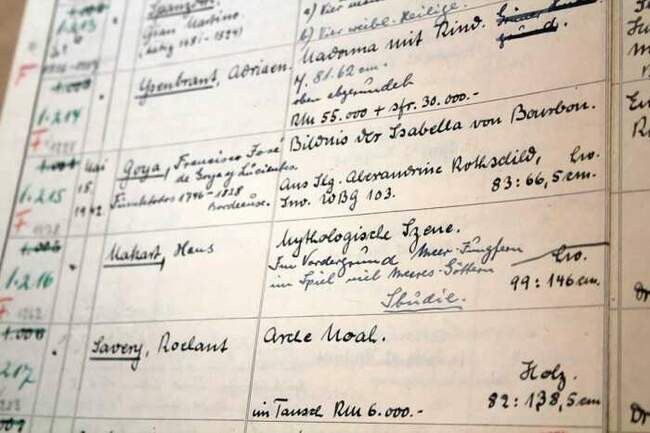 1.213
Gian Martino.
(tätig 1481-1524)
a) Vier
b) Vier weibl. Heilige.
1.003
1.214
Ysenbrant, Adriaen.
Madonna mit Kind.
H. 81.62 cm.
oben abgerundet
RM 55.000 + sfr. 30.000.-
F
1.215
Mai
15.
1942
Goya, Francisco José
de Goya y Lucientes.
Fuendetodos 1746-1828
Bordeaux.
Bildnis der Isabella von Bourbon.
Aus Slg. Alexandrine Rothschild, Lw.
Inv. WBG 103. 83:66,5 cm.
F
1.005
1.216
Makart, Hans
Mythologische Szene.
Im Vordergrund Meer-Jungfern
im Spiel mit Meeres-Göttern Lw.
99:146 cm.
Studie.
F
1.006
217
Savery, Roelant
Arche Noah.
Holz.
im Tausch RM 6.000.- 82:138,5 cm